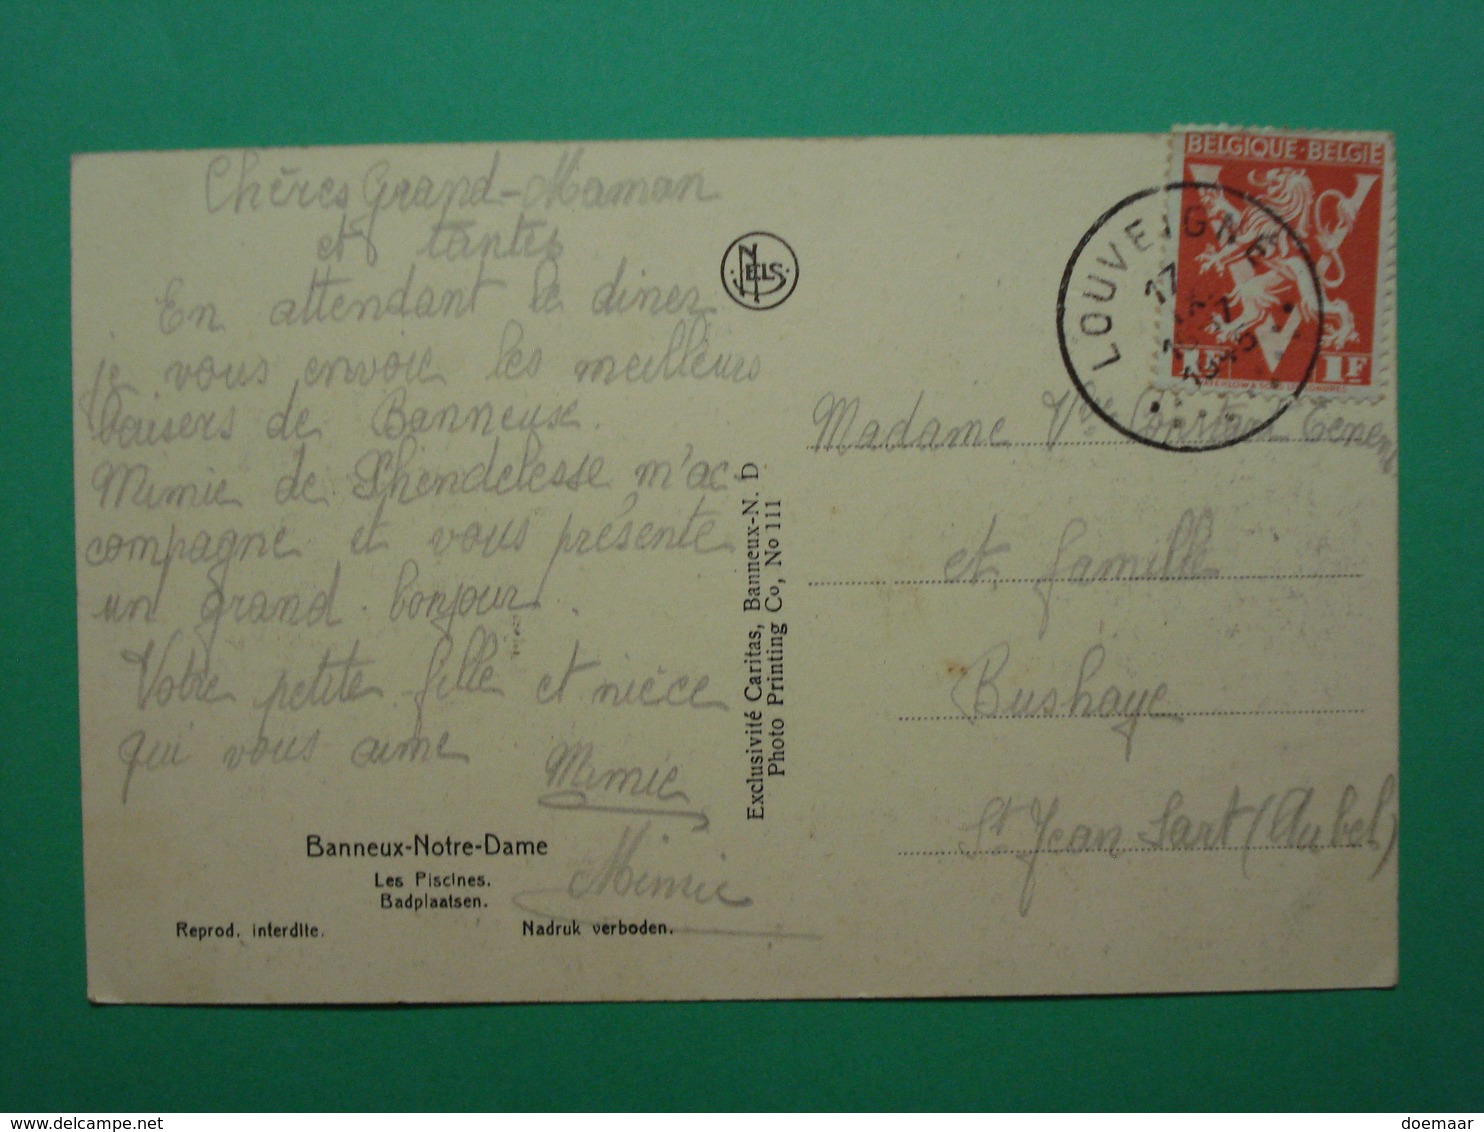 Chères Grand-Maman
et tantes
En attendant le diner
je vous envoie les meilleurs
baisers de Banneux.
Mimie de Xhendelesse m'ac-
compagne et vous présente
un grand bonjour.
Votre petite fille et nièce
qui vous aime
Mimie
Mimie
Banneux-Notre-Dame
Les Piscines.
Badplaatsen.
Reprod. interdite.
Nadruk verboden.
NELS
Exclusivité Caritas, Banneux-N. D
Photo Printing Co, No 111
BELGIQUE-BELGIE
1F 1F
LOUVEIGNE
17
1945
Madame Vve Constant
et famille
Bushaye
St Jean Sart (Aubel)
doemaar